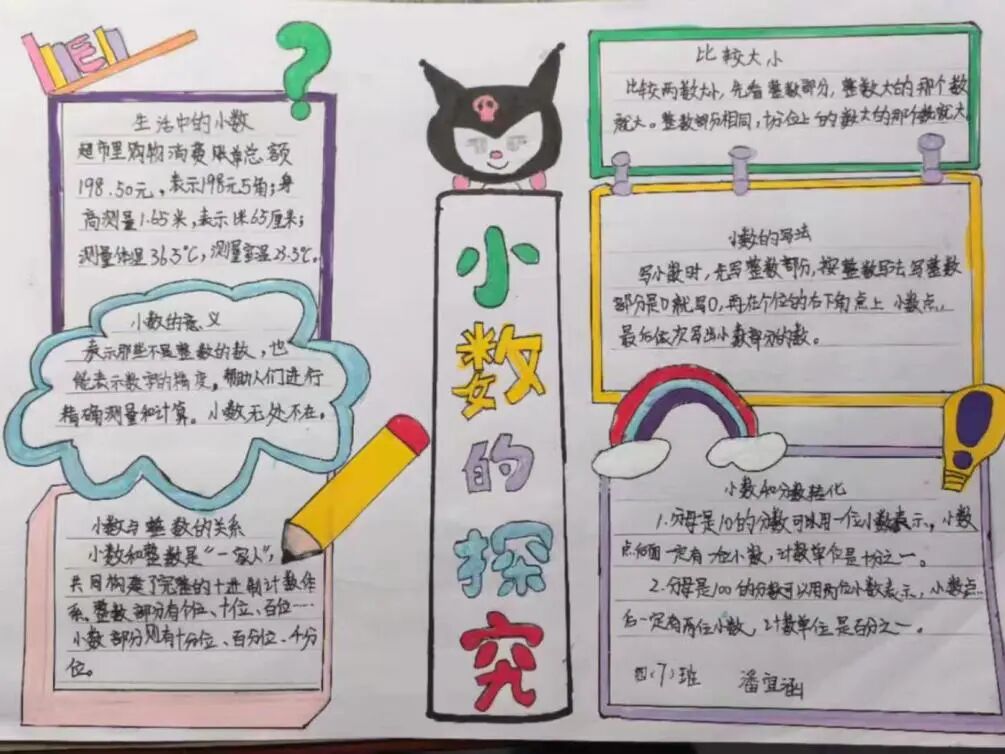 生活中的小数
超市里购物消费账单总额
198.50元，表示198元5角；身
高测量1.65米，表示1米65厘米；
测量体温36.5℃，测量室温23.5℃。
小数的意义
表示那些不是整数的数，也
能表示数字的精度。帮助人们进行
精确测量和计算。小数无处不在。
小数与整数的关系
小数和整数是“一家人”，
共同构建了完整的十进制计数体
系。整数部分有个位、十位、百位……
小数部分则有十分位、百分位、千分
位。
小数的探究
比较大小
比较两数大小，先看整数部分，整数大的那个数
就大。整数部分相同，十分位上的数大的那个数就大
小数的写法
写小数时，先写整数部分，按整数写法写整数
部分是0就写0，再在个位的右下角点上小数点，
最后依次写出小数部分的数。
小数和分数转化
1.分母是10的分数可以用一位小数表示，小数
点后面一定有一位小数，计数单位是十分之一。
2.分母是100的分数可以用两位小数表示，小数点
后一定有两位小数，计数单位是百分之一。
四(7)班 潘宜涵